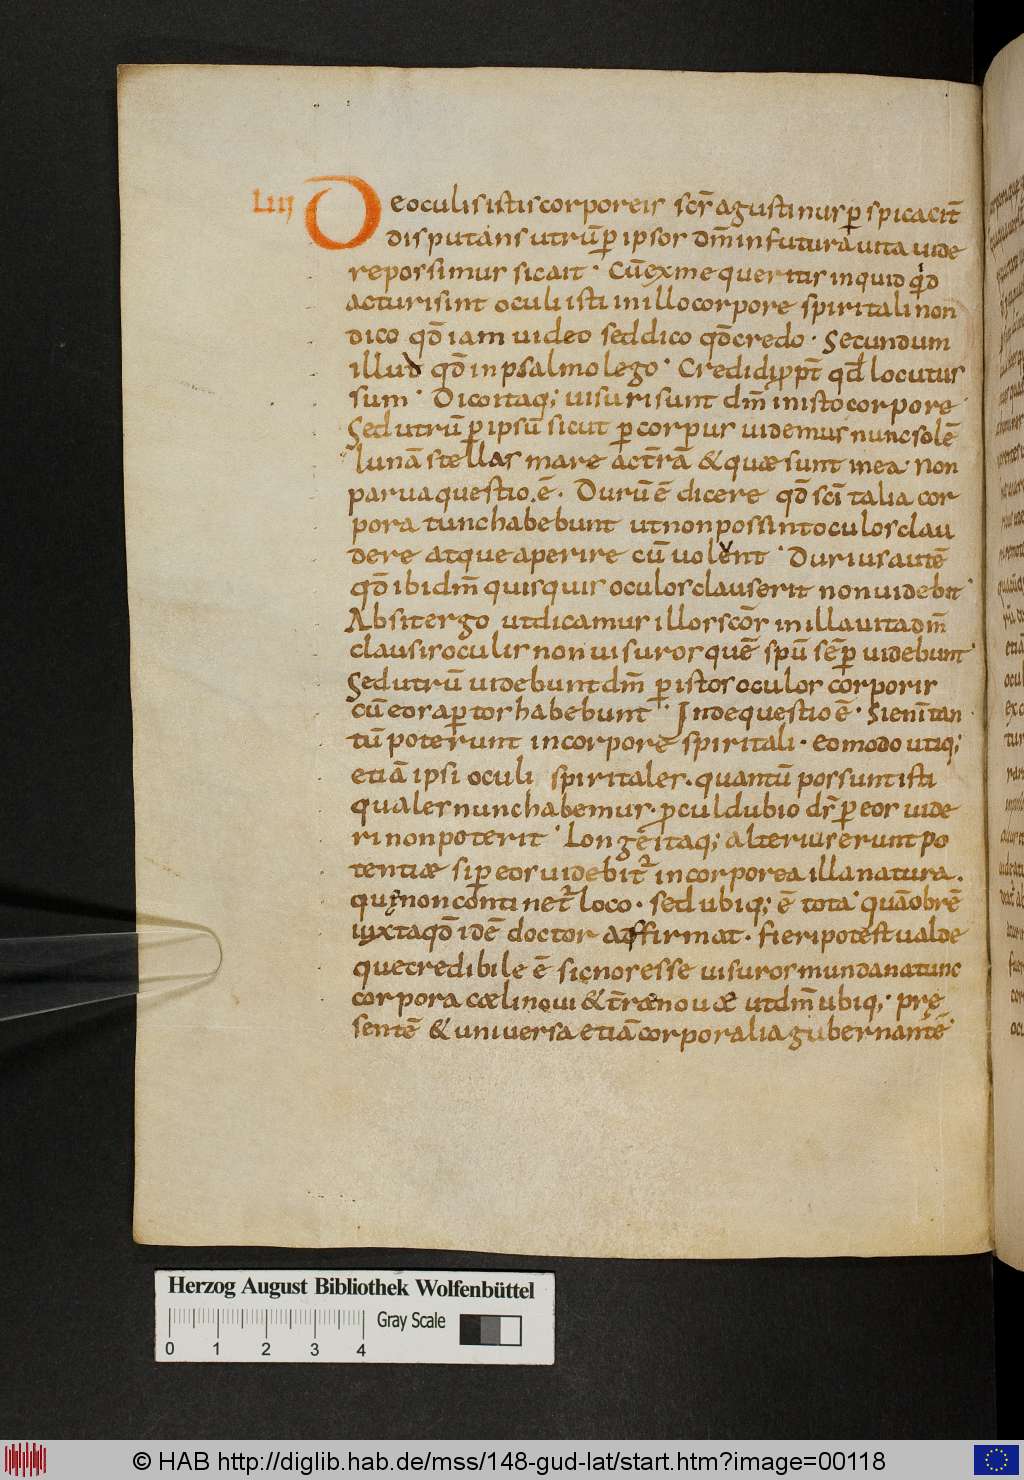 LIII De oculis istis corporeis scs̄ agustinus p̱spicacit̄
disputans utrū p̱ ipsos dm̄ in futura uita uide
re possimus sic ait · Cū ex me queritis inquid qͥd
acturi sint oculi isti in illo corpore spiritali non
dico qd̄ iam uideo sed dico qd̄ credo · Secundum
illud qd̄ in psalmo lego · Credidi p̱pt̄ qd̄ locutus
sum · Dico itaq; uisuri sunt dm̄ in isto corpore
Sed utrū p̱ ipsū sicut p̱ corpus uidemus nunc solē
lunā stellas mare ac t̄rā & quae sunt in ea · Non
parua questio ē · Durū ē dicere qd̄ sc̄i talia cor
pora tunc habebunt ut non possint oculos clau
dere atque aperire cū uolent · Durius autē
qd̄ ibi dm̄ quisquis oculos clauserit non uidebit ·
Absit ergo ut dicamus illos sc̄os in illa uita dm̄
clausis oculis non uisuros quē spū sēp̱ uidebunt ·
Sed utrū uidebunt dm̄ p̱ istos oculos corporis
cū eos ap̱tos habebunt · Inde questio ē · Si enī tan
tū poterunt in corpore spiritali · eo modo utiq;
etiā ipsi oculi spiritales · quantū possunt isti
quales nunc habemus · p̱cul dubio ds̄ p̱ eos uide
ri non poterit · Longe itaq; alterius erunt po
tentiae si p̱ eos uidebit̄ incorporea illa natura ·
quę non continet̄ loco · sed ubiq; ē tota · quāobrē
iuxta qd̄ idē doctor adfirmat · fieri potest ualde
que credibile ē sic nos esse uisuros mundana tunc
corpora caeli noui & t̄rae nouae ut dm̄ ubiq; · prę
sentē & uniuersa etiā corporalia gubernantē ·
Herzog August Bibliothek Wolfenbüttel
Gray Scale
0 1 2 3 4
© HAB http://diglib.hab.de/mss/148-gud-lat/start.htm?image=00118